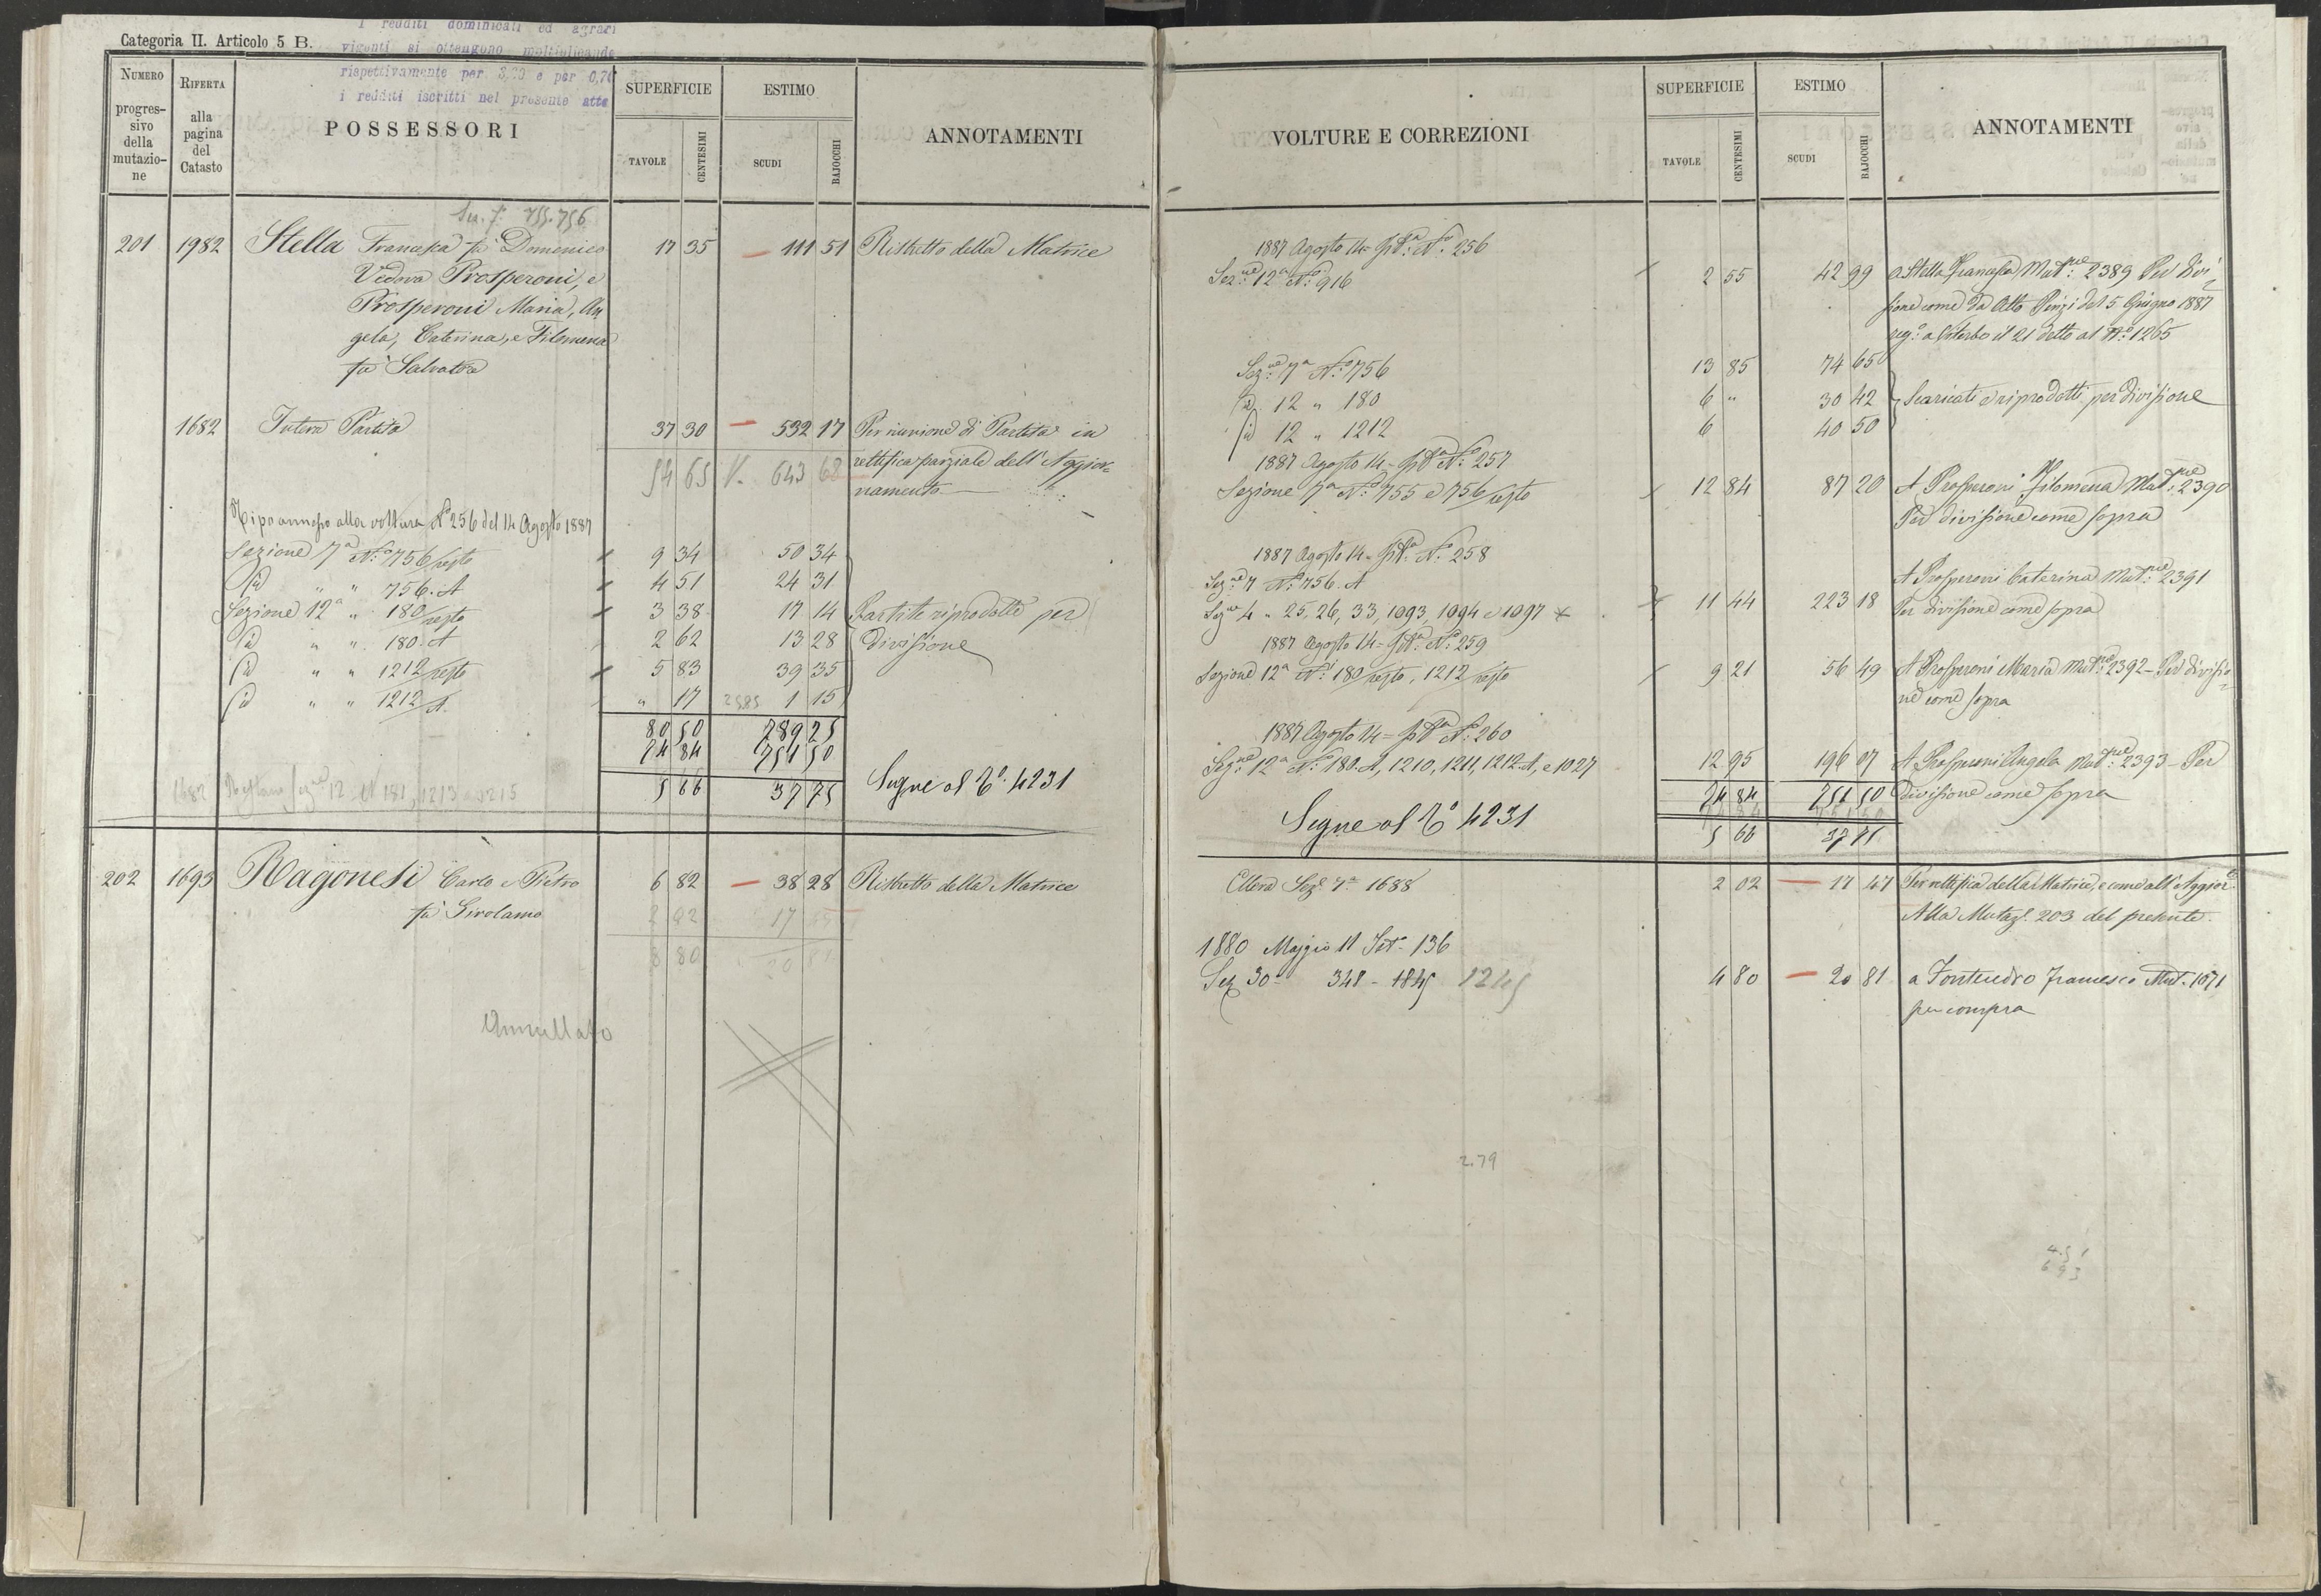 Categoria II. Articolo 5 B.
I redditi dominicali ed agrari
vigenti si ottengono moltiplicando
rispettivamente per 3,20 e per 0,70
i redditi iscritti nel presente atto
NUMERO progressivo della mutazione
RIFERTA alla pagina del Catasto
POSSESSORI
SUPERFICIE
TAVOLE
CENTESIMI
ESTIMO
SCUDI
BAJOCCHI
ANNOTAMENTI
Sez. 7ª 755. 756
201 1982 Stella Francesca fu Domenico 17 35 111 51 Ristretto della Matrice
Vedova Prosperoni, e
Prosperoni Maria, An
gela, Caterina, e Filomena
fu Salvatore
1682 Intera Partita 37 30 532 17 Per riunione di Partita in
54 65 643 68 rettifica parziale dell'Aggior-
namento
Tipo annesso alla voltura Nº 256 del 14 Agosto 1887
Sezione 7ª Nº 756/resto 9 34 50 34
id " " 756. A 4 51 24 31
Sezione 12ª " 180/resto 3 38 17 14 Partite riprodotte per
id " " 180. A 2 62 13 28 divisione
id " " 1212/resto 5 83 39 35
id " " 1212/A. " 17 1 15
80 50 789 25
74 84 751 50
5 66 37 75 Segue al Nº 4231
1682 Restano Sezne 12 N 181, 1213 a 1215
202 1693 Ragonesi Carlo e Pietro 6 82 38 28 Ristretto della Matrice
fu Girolamo 2 02 17
80 20 81
Annullato
VOLTURE E CORREZIONI
SUPERFICIE
TAVOLE
CENTESIMI
ESTIMO
SCUDI
BAJOCCHI
ANNOTAMENTI
1887 Agosto 14 = Nº 256
Sezne 12ª Nº 916 2 55 42 99 a Stella Francesca Mutne 2389 Per divi
sione come da Atto Pinzi del 5 Giugno 1887
reg.º a Viterbo il 21 detto al Nº 1265
Sezne 7ª Nº 756 13 85 74 65
id 12 " 180 6 " 30 42 Scaricati e riprodotti per divisione
id 12 " 1212 6 40 50
1887 Agosto 14 = Nº 257
Sezione 7ª Nº 755 e 756/resto 12 84 87 20 A Prosperoni Filomena Mutne 2390
Per divisione come sopra
1887 Agosto 14 = Nº 258
Sezne 7 Nº 756. A A Prosperoni Caterina Mutne 2391
Sezne 4 " 25, 26, 33, 1093, 1094 e 1097 11 44 223 18 Per divisione come sopra
1887 Agosto 14 = Nº 259
Sezione 12ª Ni 180/resto, 1212/resto 9 21 56 49 A Prosperoni Maria Mutne 2392 - Per divisio
ne come sopra
1887 Agosto 14 = Nº 260
Sezne 12ª Ni 180. A, 1210, 1211, 1212. A, e 1027 12 95 196 07 A Prosperoni Angela Mutne 2393 - Per
74 84 751 50 divisione come sopra
Segue al Nº 4231 5 66 37 75
Ellera Sezº 7ª 1688 2 02 17 47 Per rettifica della Matrice, e come all'Aggior.
Alla Mutazº. 203 del presente.
1880 Maggio 11 136
Sez 30ª 348 - 1845 1245 4 80 20 81 a Francesco Mut. 1071
per compra
2.79
4.51
693